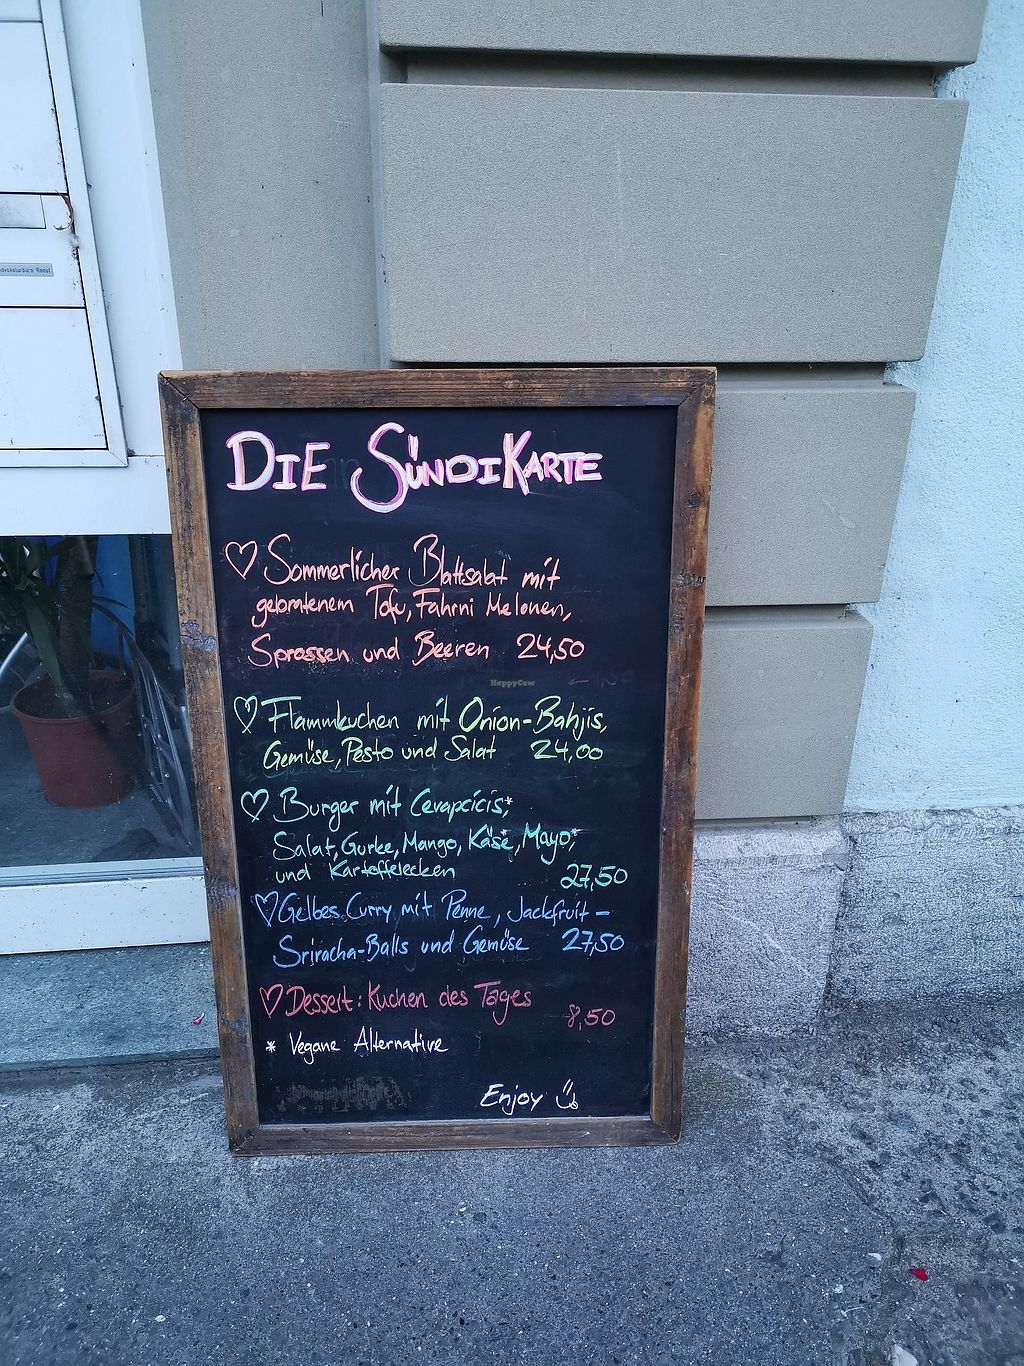 dvokaturbüro Roost
DIE SÜNDIKARTE
♡ Sommerlicher Blattsalat mit
Tofu, Fahrni Melonen,
Sprossen und Beeren 24,50
HappyCow
♡ Flammkuchen mit Onion-Bahjis,
Gemüse, Pesto und Salat 24,00
♡ Burger mit Cevapcicis*,
Salat, Gurke, Mango, Käse*, Mayo*,
und Kartoffelecken 27,50
♡ Gelbes Curry mit Penne, Jackfruit-
Sriracha-Balls und Gemüse 27,50
♡ Dessert: Kuchen des Tages 8,50
* Vegane Alternative
Enjoy